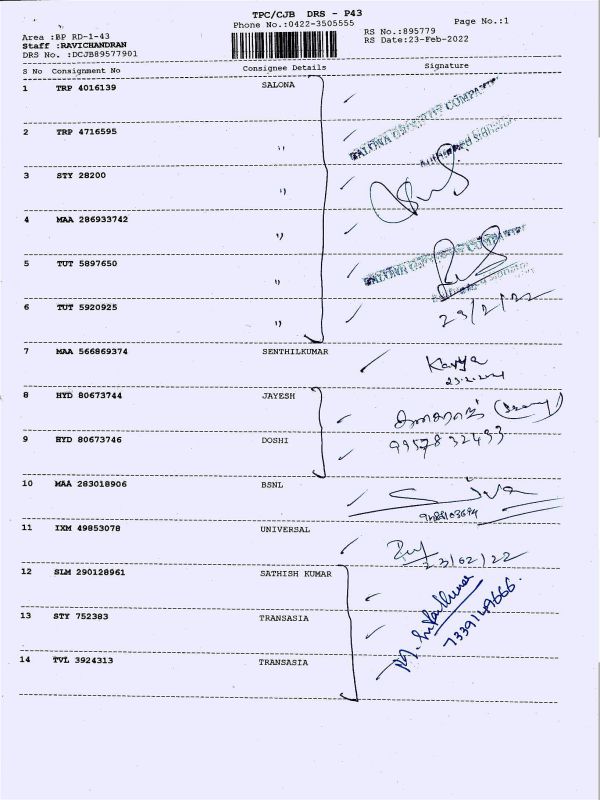 TPC/CJB DRS - P43
Phone No.:0422-3505555
Page No.:1
Area :BP RD-1-43
Staff :RAVICHANDRAN
DRS No. :DCJB89577901
RS No.:895779
RS Date:23-Feb-2022
S No Consignment No Consignee Details Signature
1 TRP 4016139 SALONA
2 TRP 4716595 ''
3 STY 28200 ''
4 MAA 286933742 ''
5 TUT 5897650 ''
6 TUT 5920925 ''
23/2/22
7 MAA 566869374 SENTHILKUMAR Kavya
8 HYD 80673744 JAYESH
9 HYD 80673746 DOSHI 9957832433
10 MAA 283018906 BSNL Siva
11 IXM 49853078 UNIVERSAL
23/02/22
12 SLM 290128961 SATHISH KUMAR
13 STY 752383 TRANSASIA
7339149666
14 TVL 3924313 TRANSASIA